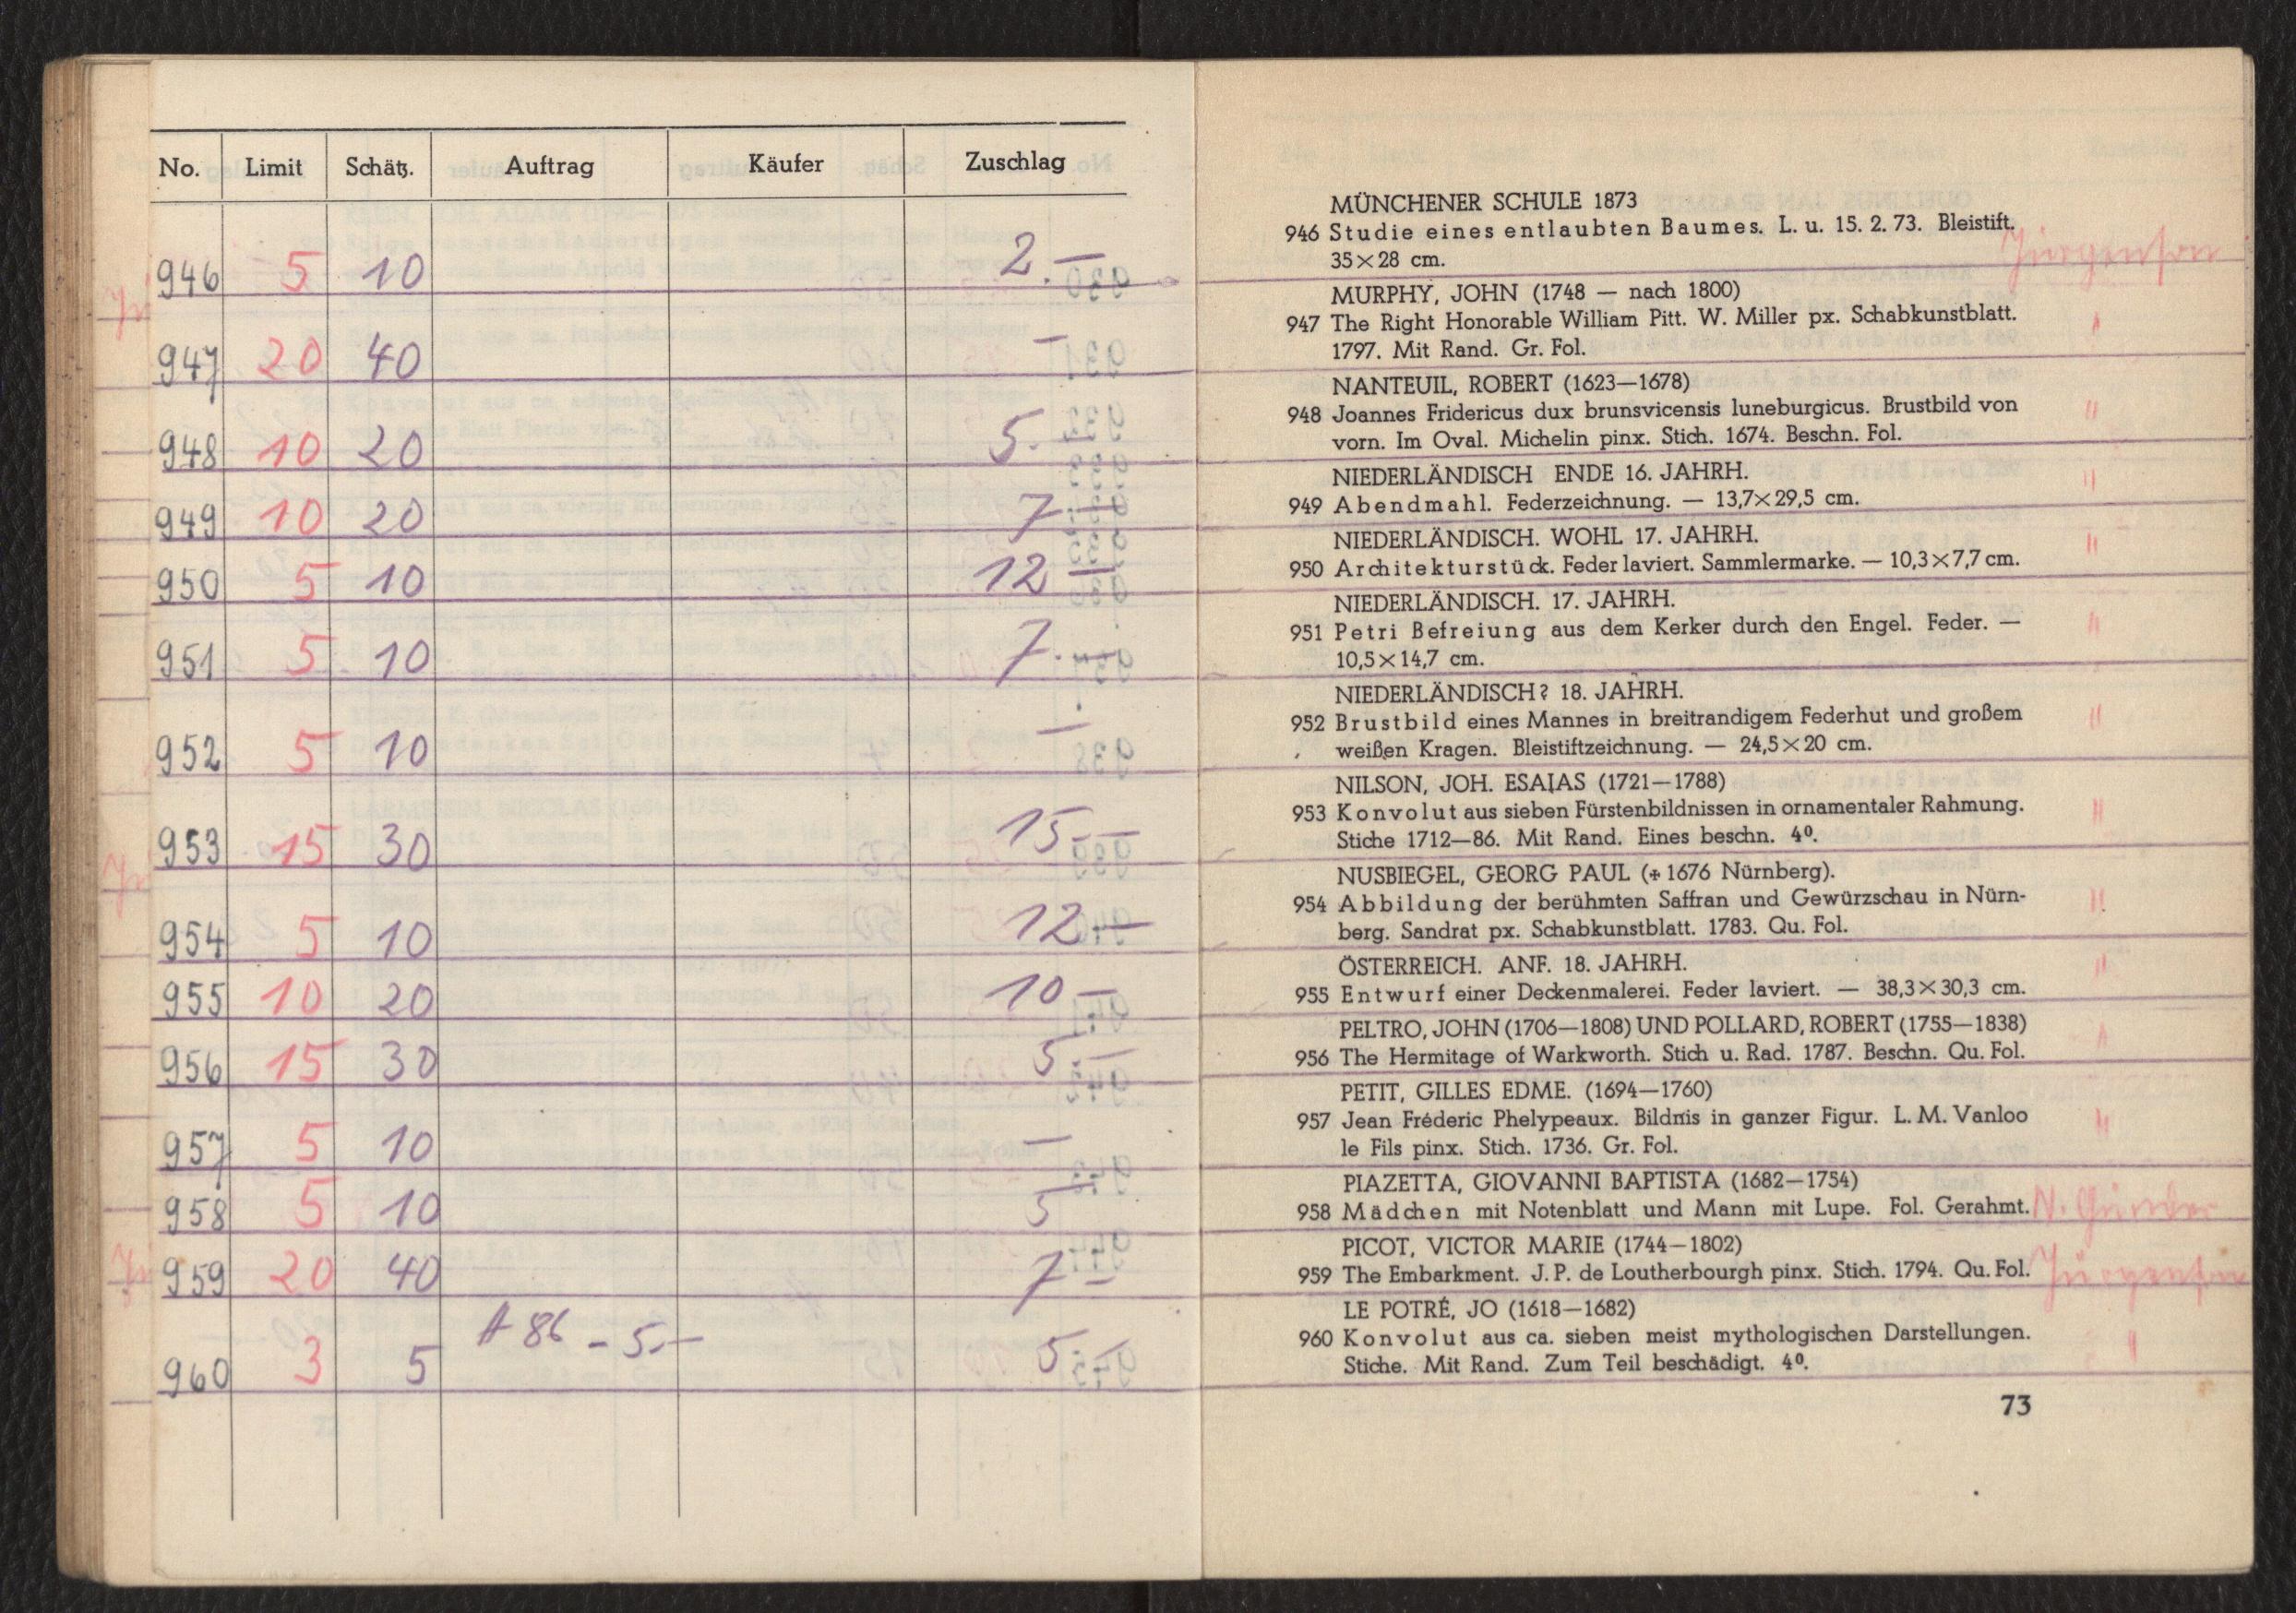 No. Limit Schätz. Auftrag Käufer Zuschlag
946 5 10 2.—
947 20 40 —
948 10 20 5.
949 10 20 7.—
950 5 10 12 —
951 5 10 7.—
952 5 10 —
953 15 30 15.—
954 5 10 12.—
955 10 20 10 —
956 15 30 5.—
957 5 10 —
958 5 10 5
959 20 40 7 —
960 3 5 A 86 – 5.— 5.—
MÜNCHENER SCHULE 1873
946 Studie eines entlaubten Baumes. L. u. 15. 2. 73. Bleistift. Jürgenson
35×28 cm.
MURPHY, JOHN (1748 — nach 1800)
947 The Right Honorable William Pitt. W. Miller px. Schabkunstblatt. "
1797. Mit Rand. Gr. Fol.
NANTEUIL, ROBERT (1623—1678)
948 Joannes Fridericus dux brunsvicensis luneburgicus. Brustbild von "
vorn. Im Oval. Michelin pinx. Stich. 1674. Beschn. Fol.
NIEDERLÄNDISCH ENDE 16. JAHRH.
949 Abendmahl. Federzeichnung. — 13,7×29,5 cm. "
NIEDERLÄNDISCH. WOHL 17. JAHRH.
950 Architekturstück. Feder laviert. Sammlermarke. — 10,3×7,7 cm. "
NIEDERLÄNDISCH. 17. JAHRH.
951 Petri Befreiung aus dem Kerker durch den Engel. Feder. — "
10,5×14,7 cm.
NIEDERLÄNDISCH? 18. JAHRH.
952 Brustbild eines Mannes in breitrandigem Federhut und großem "
weißen Kragen. Bleistiftzeichnung. — 24,5×20 cm.
NILSON, JOH. ESAIAS (1721—1788)
953 Konvolut aus sieben Fürstenbildnissen in ornamentaler Rahmung. "
Stiche 1712—86. Mit Rand. Eines beschn. 4⁰.
NUSBIEGEL, GEORG PAUL (✠ 1676 Nürnberg).
954 Abbildung der berühmten Saffran und Gewürzschau in Nürn- "
berg. Sandrat px. Schabkunstblatt. 1783. Qu. Fol.
ÖSTERREICH. ANF. 18. JAHRH. "
955 Entwurf einer Deckenmalerei. Feder laviert. — 38,3×30,3 cm.
PELTRO, JOHN (1706—1808) UND POLLARD, ROBERT (1755—1838) "
956 The Hermitage of Warkworth. Stich u. Rad. 1787. Beschn. Qu. Fol.
PETIT, GILLES EDME. (1694—1760)
957 Jean Fréderic Phelypeaux. Bildnis in ganzer Figur. L. M. Vanloo "
le Fils pinx. Stich. 1736. Gr. Fol.
PIAZETTA, GIOVANNI BAPTISTA (1682—1754)
958 Mädchen mit Notenblatt und Mann mit Lupe. Fol. Gerahmt. N. Günther
PICOT, VICTOR MARIE (1744—1802)
959 The Embarkment. J. P. de Loutherbourgh pinx. Stich. 1794. Qu. Fol. Jürgenson
LE POTRÉ, JO (1618—1682)
960 Konvolut aus ca. sieben meist mythologischen Darstellungen. "
Stiche. Mit Rand. Zum Teil beschädigt. 4⁰.
73